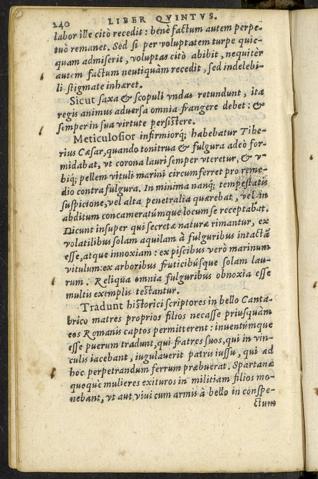 240 LIBER QVINTVS.
labor ille citò recedit: benè factum autem perpe-
tuò remanet. Sed si per voluptatem turpe quic-
quam admiserit, voluptas citò abibit, nequiter
autem factum neutiquàm recedit, sed indelebi-
li stigmate inhæret.
Sicut saxa & scopuli vndas retundunt, ita
regis animus aduersa omnia frangere debet: &
semper in sua virtute persistere.
Meticulosior infirmiorq́; habebatur Tibe-
rius Cæsar, quando tonitrua & fulgura adeò for-
midabat, vt corona lauri semper vteretur, & v-
biq́; pellem vituli marini circumferret pro reme-
dio contra fulgura. In minima nanq́; tempestatis
suspicione, vel alta penetralia quærebat, vel in
abditum concameratumque locum se receptabat.
Dicunt insuper qui secreta naturæ rimantur, ex
volatilibus solam aquilam à fulguribus intactã
esse, atque innoxiam: ex piscibus verò marinum
vitulum: ex arboribus fruticibúsque solam lau-
rum. Reliqua omnia fulguribus obnoxia esse
multis exemplis testantur.
Tradunt historici scriptores in bello Canta-
brico matres proprios filios necasse priusquàm
eos Romanis captos permitterent: inuentúmque
esse puerum tradunt, qui fratres suos, qui in vin-
culis iacebant, iugulauerit patris iussu, qui ad
hoc perpetrandum ferrum præbuerat. Spartanæ
quoque mulieres exituros in militiam filios mo-
nebant, vt aut viui cum armis à bello in conspe-
ctum